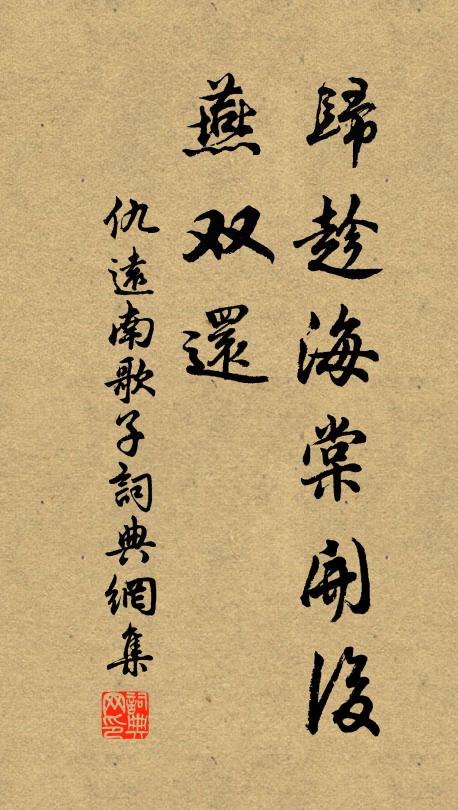 歸趁海棠開後
燕双還
仇遠南歌子詞典網集
詞典网印